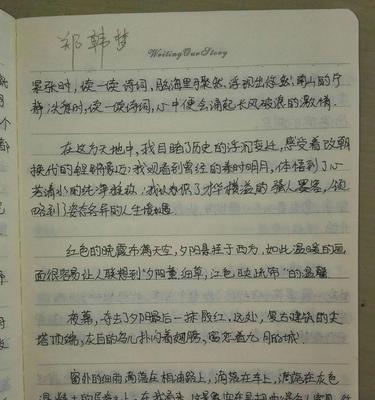 郑韩梦
Writing Our Story
紧张时,读一读诗词,脑海里骤然浮现出悠然南山的宁
静;失落时,读一读诗词,心中便会涌起长风破浪的激情。
在这方天地中,我目睹了历史的浮沉变迁,感受着改朝
换代的
我观看到曾经的秦时明月,体悟到了
我认识了才华横溢的骚人墨客,领
略到了姿态各异的人生境遇
红色的晚霞布满天空,夕阳悬挂于西方,如此温暖的画
面很容易让人联想到“夕阳薰细草,江色映疏帘”的温馨
夜幕,夺去了夕阳最后一抹殷红,远处,复古建筑的尖
塔顶端,灰白的鸟儿扑闪着翅膀,留恋着九月的城
窗外的细雨滴落在柏油路上,滴落在车上,滴落在灰色